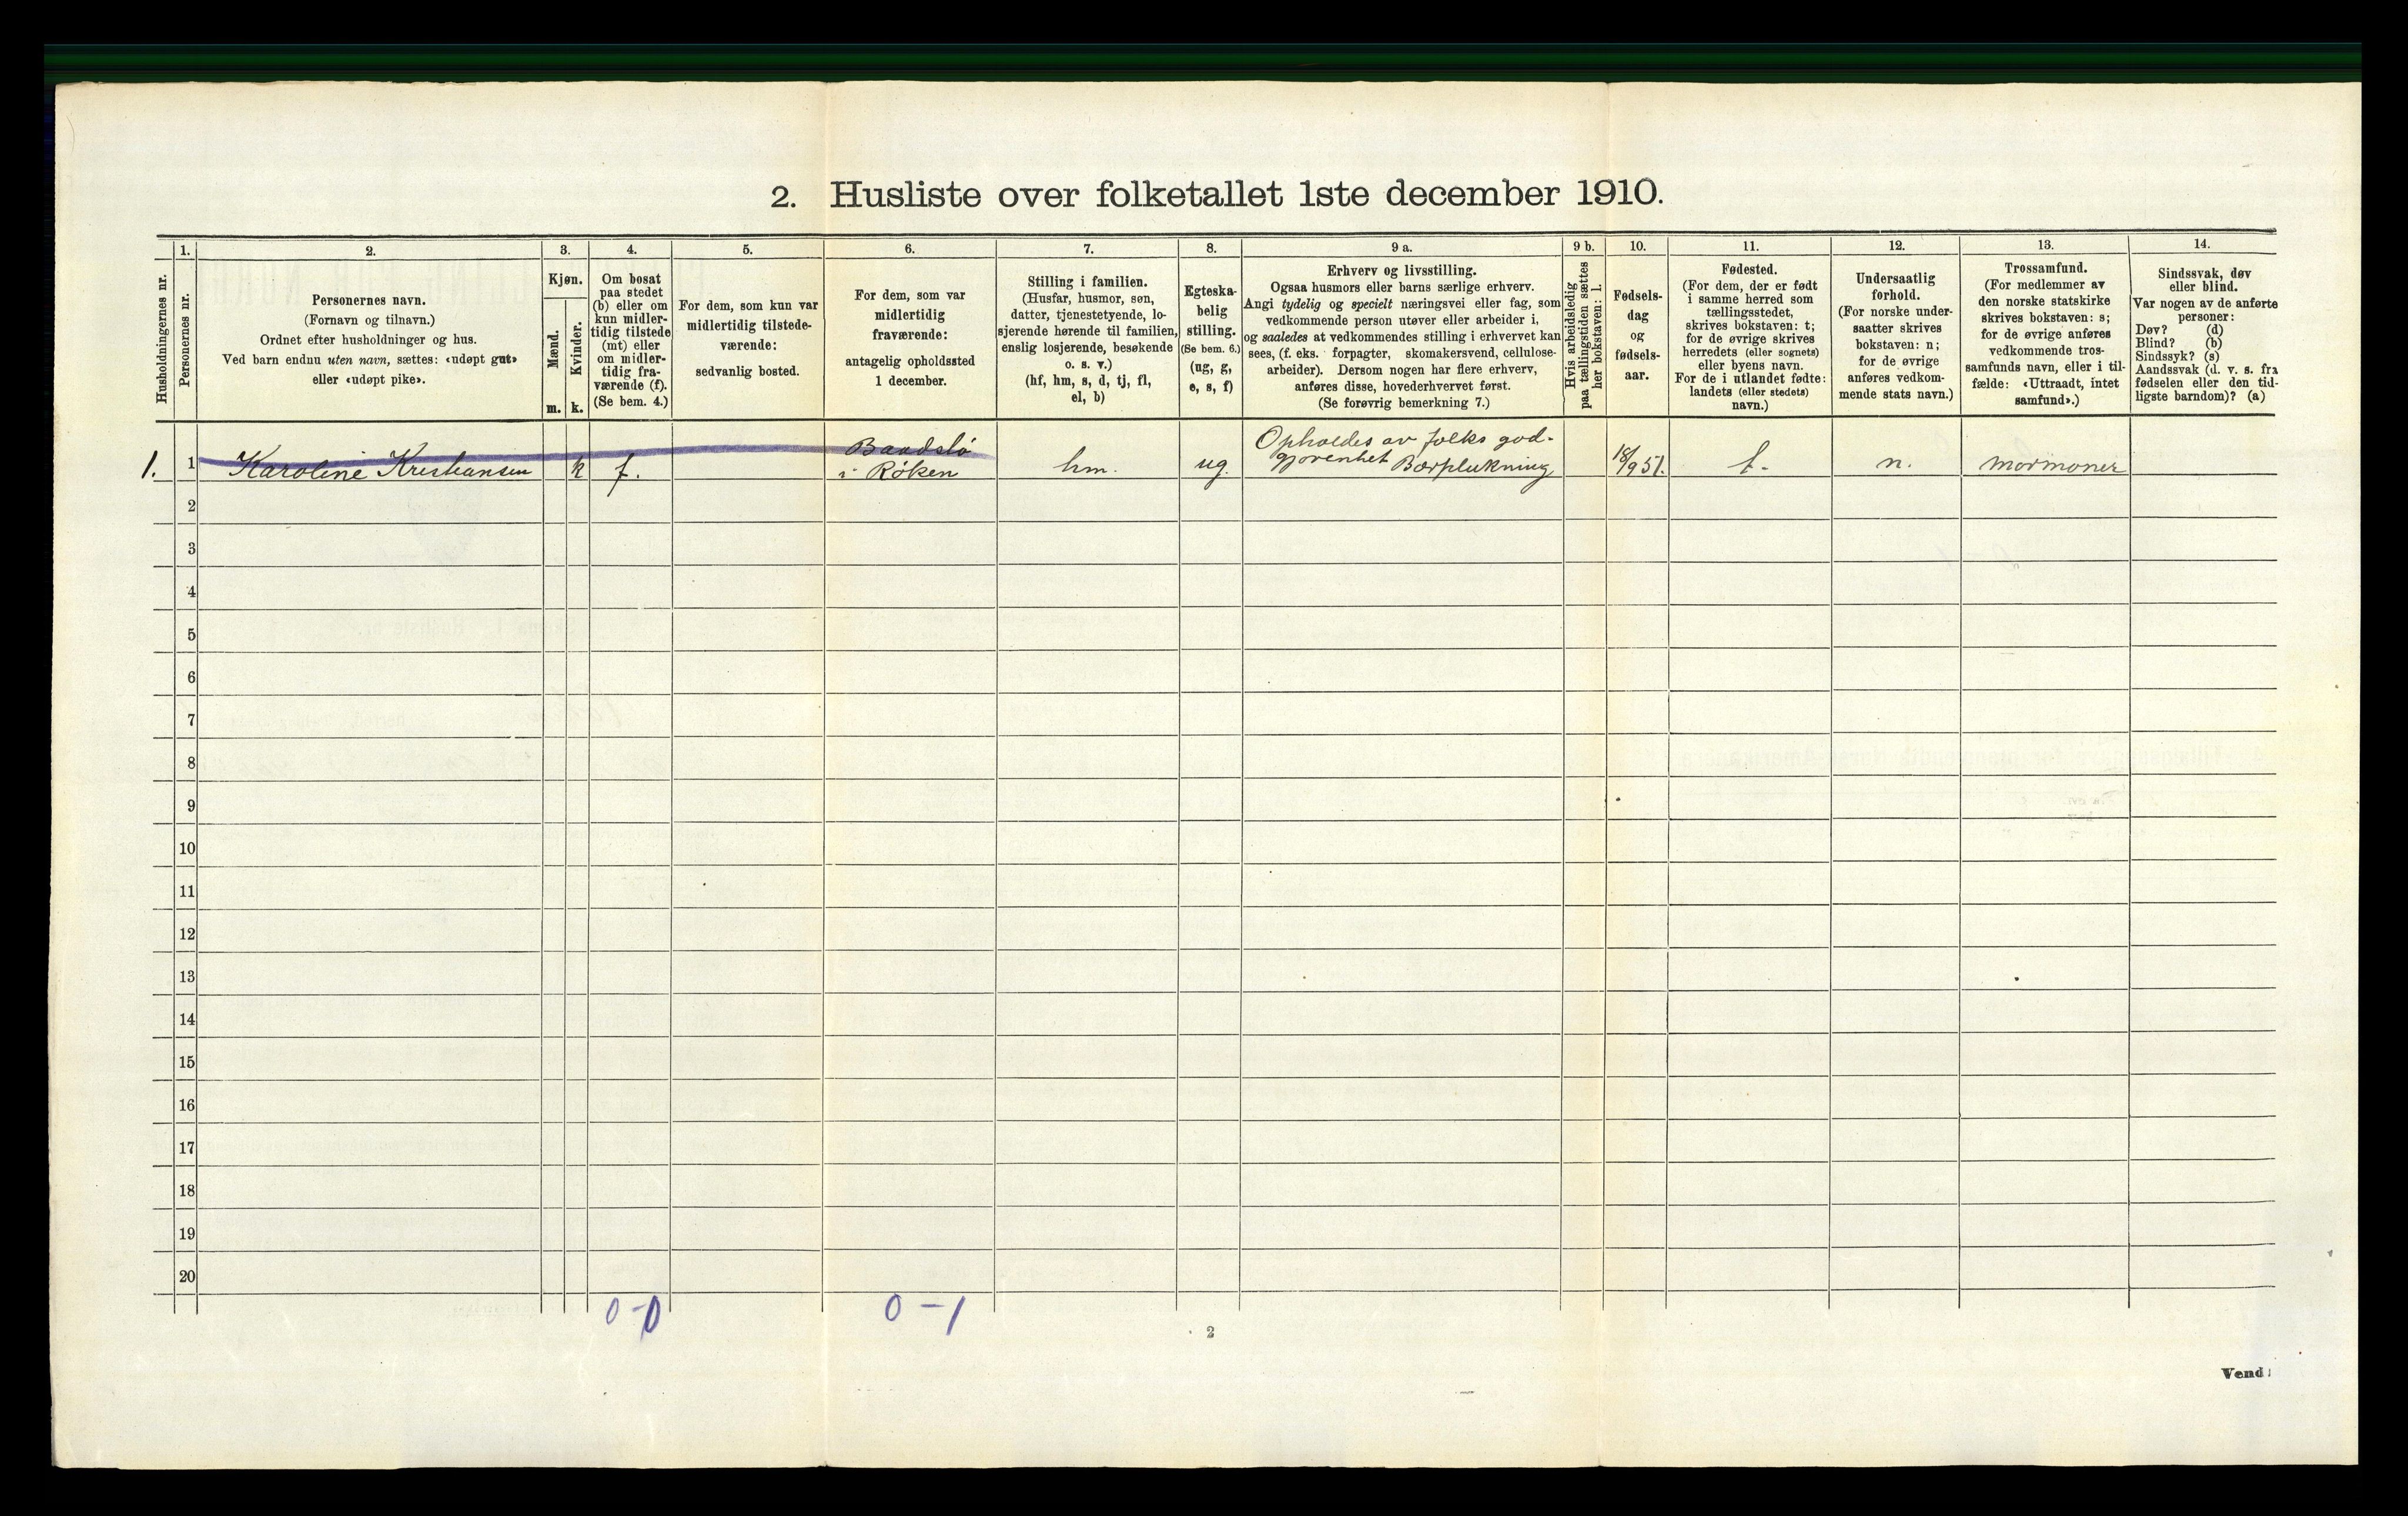 2. Husliste over folketallet 1ste december 1910.
Husholdningernes nr.
1.
Personernes nr.
2.
Personernes navn.
(Fornavn og tilnavn.)
Ordnet efter husholdninger og hus.
Ved barn endnu uten navn, sættes: «udøpt gut»
eller «udøpt pike».
3.
Kjøn.
Mænd.
Kvinder.
m.
k.
4.
Om bosat
paa stedet
(b) eller om
kun midler-
tidig tilstede
(mt) eller
om midler-
tidig fra-
værende (f).
(Se bem. 4.)
5.
For dem, som kun var
midlertidig tilstede-
værende:
sedvanlig bosted.
6.
For dem, som var
midlertidig
fraværende:
antagelig opholdssted
1 december.
7.
Stilling i familien.
(Husfar, husmor, søn,
datter, tjenestetyende, lo-
sjerende hørende til familien,
enslig losjerende, besøkende
o. s. v.)
(hf, hm, s, d, tj, fl,
el, b)
8.
Egteska-
belig
stilling.
(Se bem. 6.)
(ug, g,
e, s, f)
9 a.
Erhverv og livsstilling.
Ogsaa husmors eller barns særlige erhverv.
Angi tydelig og specielt næringsvei eller fag, som
vedkommende person utøver eller arbeider i,
og saaledes at vedkommendes stilling i erhvervet kan
sees, (f. eks. forpagter, skomakersvend, cellulose-
arbeider). Dersom nogen har flere erhverv,
anføres disse, hovederhvervet først.
(Se forøvrig bemerkning 7.)
9 b.
Hvis arbeidsledig
paa tællingstiden sættes
her bokstaven: l.
10.
Fødsels-
dag
og
fødsels-
aar.
11.
Fødested.
(For dem, der er født
i samme herred som
tællingsstedet,
skrives bokstaven: t;
for de øvrige skrives
herredets (eller sognets)
eller byens navn.
For de i utlandet fødte:
landets (eller stedets)
navn.)
12.
Undersaatlig
forhold.
(For norske under-
saatter skrives
bokstaven: n;
for de øvrige
anføres vedkom-
mende stats navn.)
13.
Trossamfund.
(For medlemmer av
den norske statskirke
skrives bokstaven: s;
for de øvrige anføres
vedkommende tros-
samfunds navn, eller i til-
fælde: «Uttraadt, intet
samfund».)
14.
Sindssvak, døv
eller blind.
Var nogen av de anførte
personer:
Døv? (d)
Blind? (b)
Sindssyk? (s)
Aandssvak (d. v. s. fra
fødselen eller den tid-
ligste barndom)? (a)
1. 1 Karoline Kristiansen k f. Baadslø
i Røken hm. ug. Opholdes av folks god-
gjørenhet Bærplukning 18/9 51. t. n. mormoner
2
3
4
5
6
7
8
9
10
11
12
13
14
15
16
17
18
19
20
0-0 0-1
2
Vend!